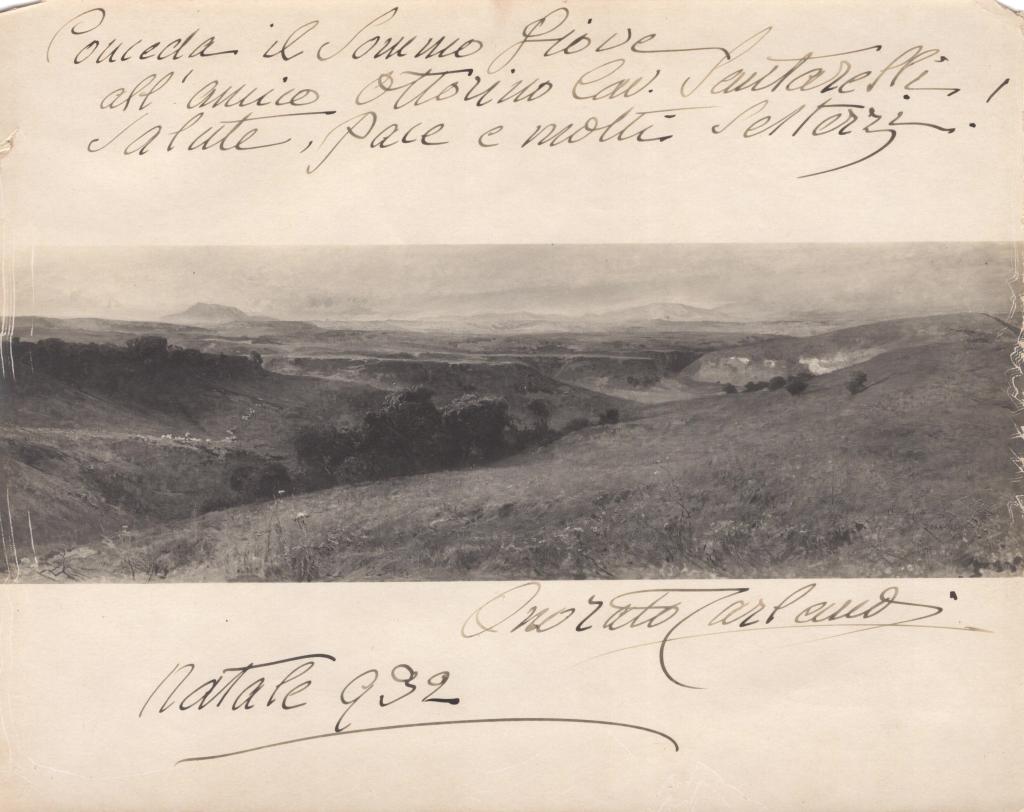 Conceda il Sommo Giove
all'amico Ottorino Cav. Santarelli,
Salute, Pace e molti Sesterzi.
Onorato Carlandi.
Natale 932